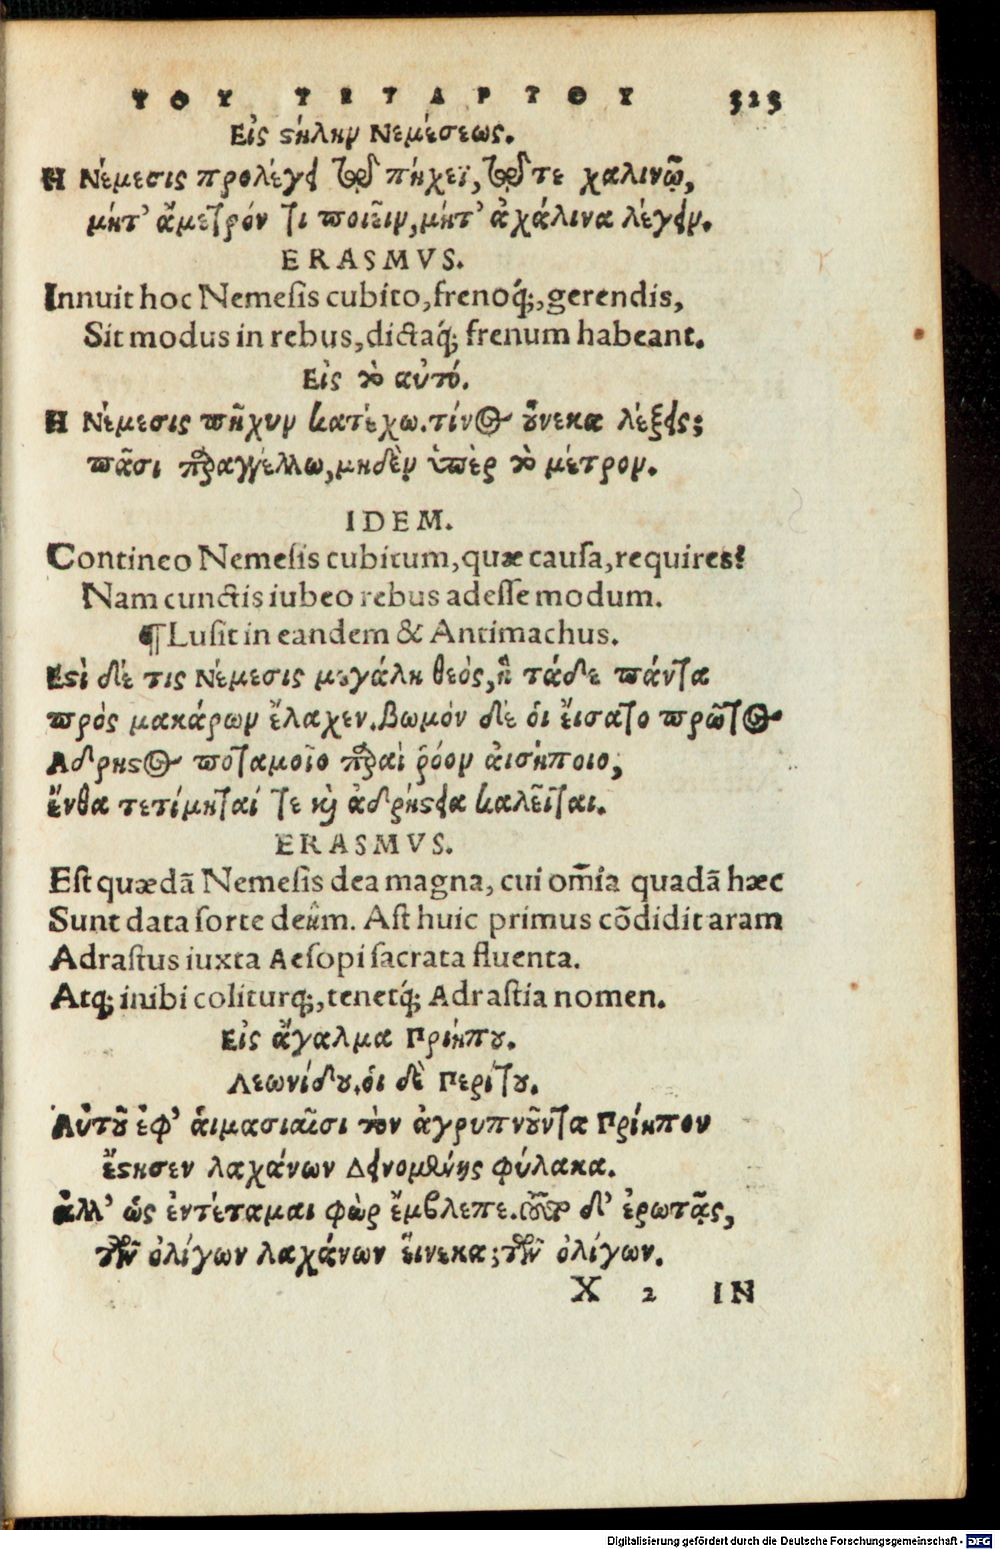 ΤΟΥ ΤΕΤΑΡΤΟΥ 323
Εἰς ϛήλην Νεμέσεως.
Η Νέμεσις προλέγει τῷ πήχεϊ, τῷ τε χαλινῷ,
μήτ' ἄμετρόν τι ποιεῖν, μήτ' ἀχάλινα λέγειν.
ERASMVS.
Innuit hoc Nemeſis cubito, frenoq́;, gerendis,
Sit modus in rebus, dictaq́; frenum habeant.
Εἰς τὸ αὐτό.
Η Νέμεσις πῆχυν κατέχω. τίνος οὕνεκα λέξεις;
πᾶσι παραγγέλλω, μηδὲν ὑπὲρ τὸ μέτρον.
IDEM.
Contineo Nemeſis cubitum, quæ cauſa, requires?
Nam cunctis iubeo rebus adeſſe modum.
¶ Luſit in eandem & Antimachus.
Εϛὶ δέ τις Νέμεσις μεγάλη θεὸς, ἣ τάδε πάντα
πρὸς μακάρων ἔλαχεν. βωμόν δέ ὁι εἵσατο πρῶτος
Αδρηϛος ποταμοῖο παραὶ ῥόον ἀισήποιο,
ἔνθα τετίμηταί τε καὶ ἀδρήϛεια καλεῖται.
ERASMVS.
Eſt quædã Nemeſis dea magna, cui om̃ia quadã hæc
Sunt data ſorte deûm. Aſt huic primus cõdidit aram
Adraſtus iuxta Aeſopi ſacrata fluenta.
Atq; inibi coliturq;, tenetq́; Adraſtia nomen.
Εἰς ἄγαλμα Πριήπου.
Λεωνίδου. ὁι δὲ Περίτου.
Αὐτοῦ ἐφ' ἁιμασιαῖσι τὸν ἀγρυπνοῦντα Πρίηπον
ἔϛησεν λαχάνων Δεινομένης φύλακα.
ἀλλ' ὡς ἐντέταμαι φὼρ ἔμβλεπε. τοῦτο δ' ἐρωτᾷς,
τῶν ὀλίγων λαχάνων εἵνεκα; τῶν ὀλίγων.
X 2 IN
Digitalisierung gefördert durch die Deutsche Forschungsgemeinschaft - DFG